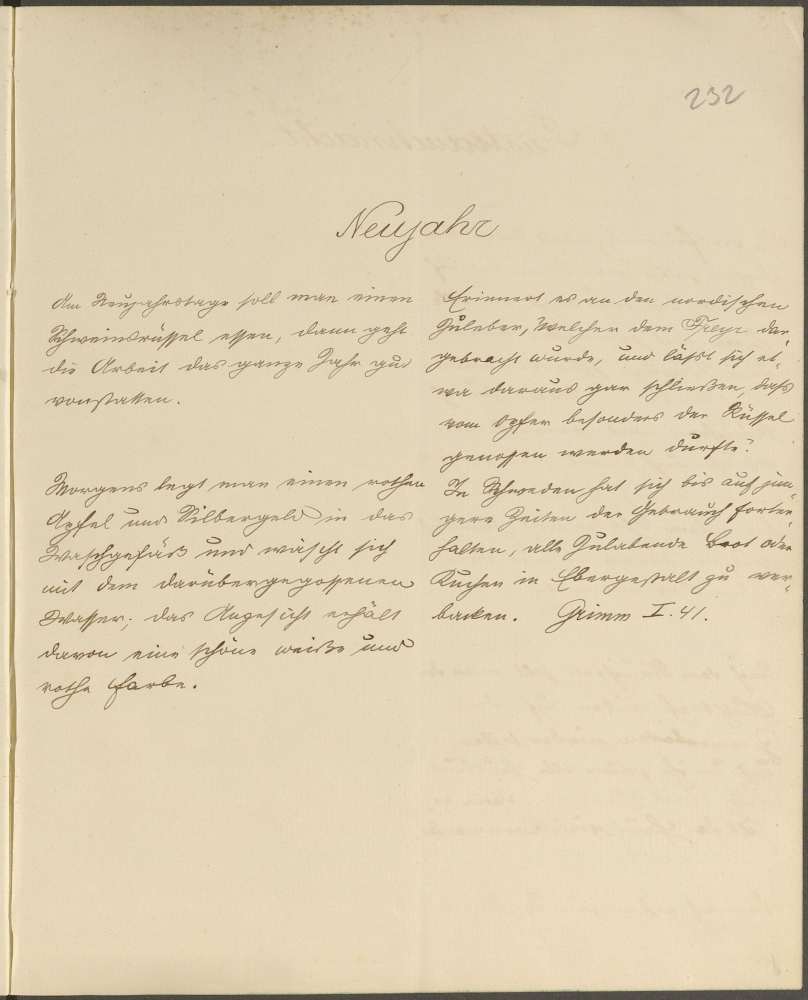 232
Neujahr
Am Neujahrstage soll man einen
Schweinsrüssel essen, dann geht
die Arbeit das ganze Jahr gut
vonstatten.
Morgens legt man einen rothen
Apfel und Silbergeld in das
Waschgefäß und wäscht sich
mit dem darübergegossenen
Wasser; das Angesicht erhält
davon eine schöne weiße und
rothe Farbe.
Erinnert es an den nordischen
Juleber, welcher dem Freyr dar-
gebracht wurde, und läßt sich et-
wa daraus gar schließen, daß
vom Opfer besonders der Rüssel
genossen werden durfte?
In Schweden hat sich bis auf jün-
gere Zeiten der Gebrauch forter-
halten, alle Julabende Brot oder
Kuchen in Ebergestalt zu ver-
backen. Grimm I. 41.